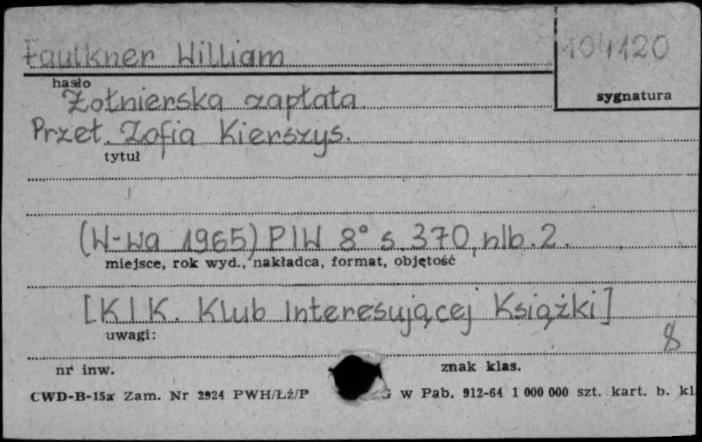 Faulkner William
104120
hasło
sygnatura
Żołnierska zapłata
Przeł. Zofia Kierszys.
tytuł
(W-wa 1965) PIW 8° s. 370, nlb. 2.
miejsce, rok wyd., nakładca, format, objętość
[KIK. Klub Interesującej Książki]
uwagi:
8
nr inw.
znak klas.
CWD-B-15a Zam. Nr 2924 PWH/Łż/P G w Pab. 912-64 1 000 000 szt. kart. b. kl